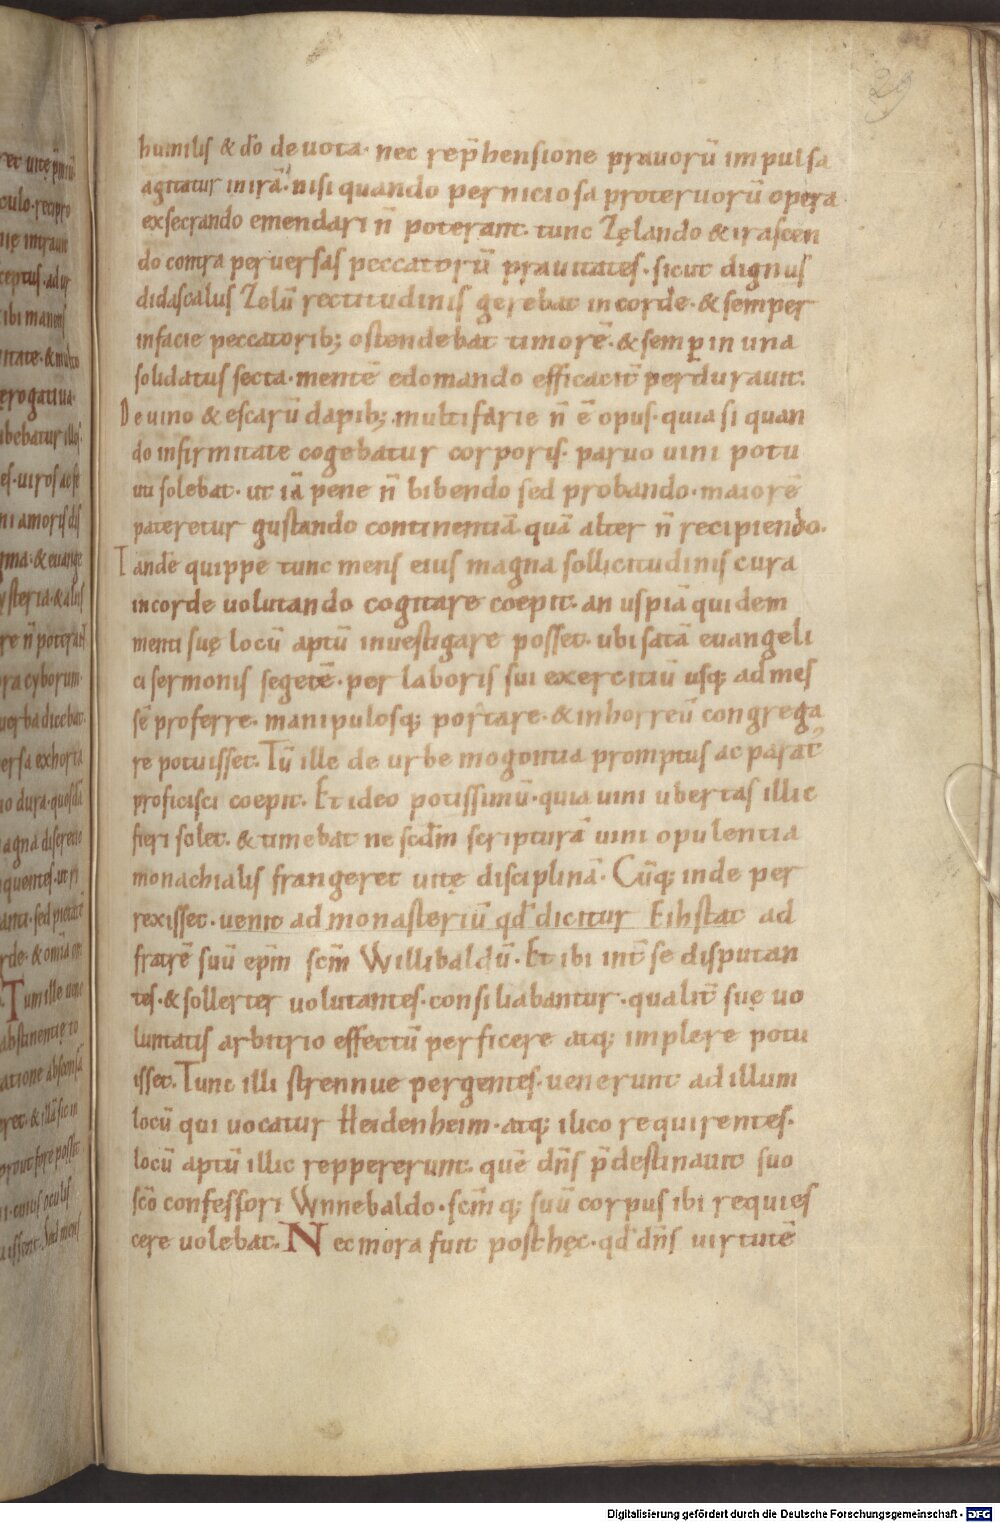 29
humilis & dō deuota· nec rep̄hensione prauorū impulsa
agitatur in irā· nisi quando perniciosa proteruorū opera
exsecrando emendari n̄ poterant· tunc zęlando & irascen
do contra peruersas peccatorū prauitates· sicut dignus
didascalus zelū rectitudinis gerebat in corde· & semper
in facie peccatorib; ostendebat timorē· & semp̱ in una
solidatus secta· mentē edomando efficacit̄ perdurauit.
De uino & escarū dapib; multifarie n̄ ē opus· quia si quan
do infirmitate cogebatur corporis· paruo uini potu
uti solebat· ut iā pene n̄ bibendo sed probando· maiorē
pateretur gustando continentiā quā alter n̄ recipiendo.
Tandē quippe tunc mens eius magna sollicitudinis cura
in corde uolutando cogitare coepit· an uspiā quidem
menti suę locū aptū inuestigare posset· ubi satā euangeli
ci sermonis segetē· per laboris sui exercitiū usq; ad mes
sē proferre· manipulosq; portare· & in horreū congrega
re potuisset. Tū ille de urbe mogontia promptus ac parat᾽
proficisci coepit. Et ideo potissimū· quia uini ubertas illic
fieri solet· & timebat ne scd̄m scripturā uini opulentia
monachialis frangeret uitę disciplinā· Cūq; inde per
rexisset· uenit ad monasteriū qd̄ dicitur Eihstat ad
fratrē suū ep̄m sc̄m Willibaldū· Et ibi int̄ se disputan
tes· & sollerter uolutantes· consiliabantur· qualit̄ suę uo
luntatis arbitrio effectū perficere atq; implere potu
isset. Tunc illi strennue pergentes· uenerunt ad illum
locū qui uocatur Heidenheim· atq; ilico requirentes·
locū aptū illic reppererunt· quē dn̄s p̄destinauit suo
sc̄o confessori Wnnebaldo· sc̄mq; suū corpus ibi requies
cere uolebat· Nec mora fuit posthęc· qd̄ dn̄s uirtutē
Digitalisierung gefördert durch die Deutsche Forschungsgemeinschaft - DFG